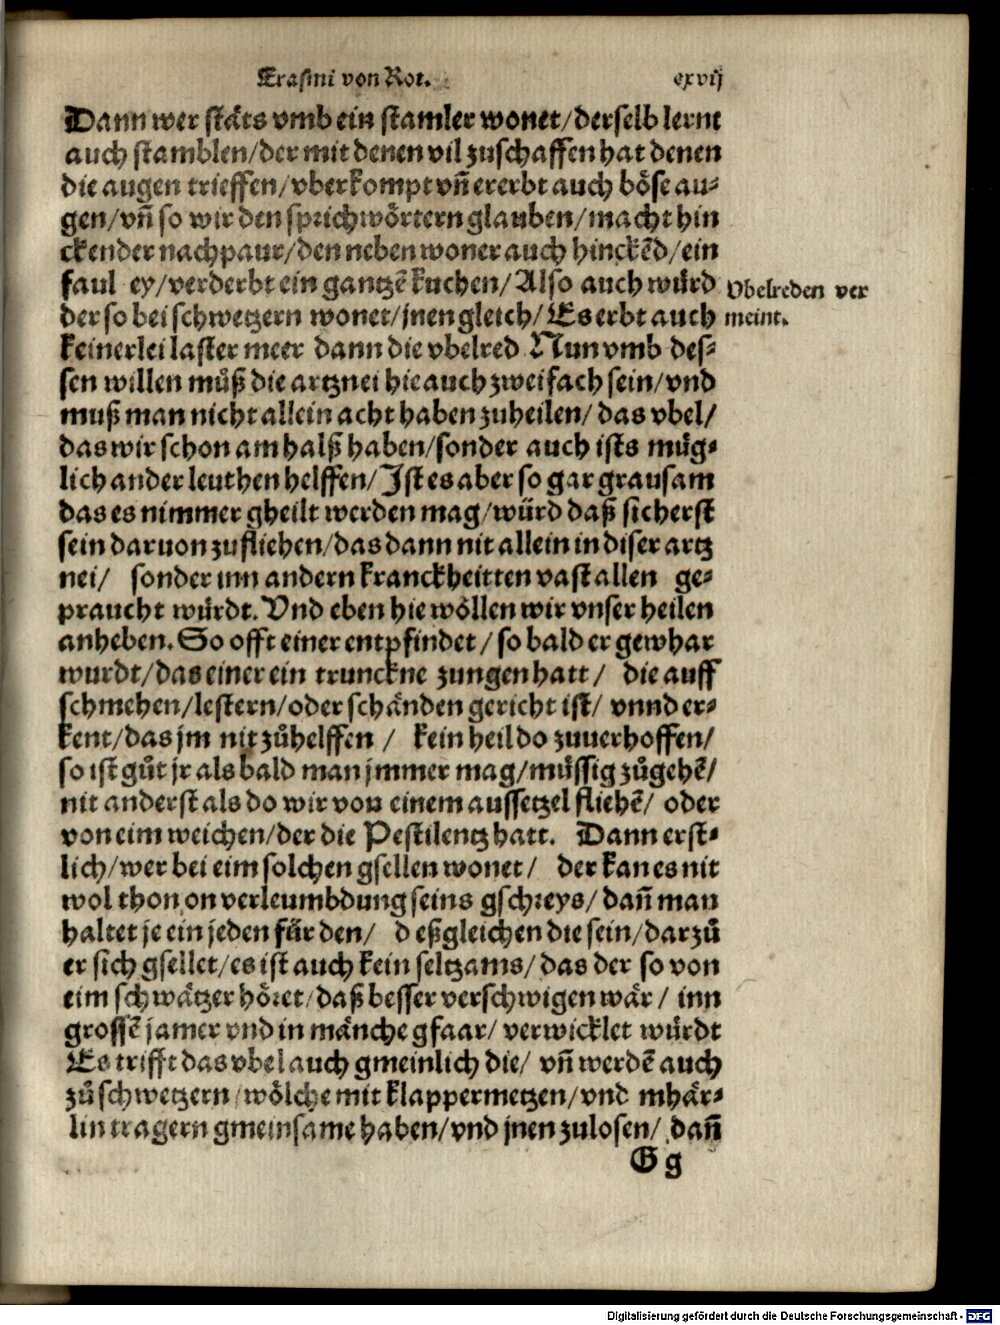 Erasmi von Rot. cxvij
Dann wer stäts vmb ein stamler wonet/derselb lernt
auch stamblen/der mit denen vil zuschaffen hat denen
die augen trieffen/vberkompt vñ ererbt auch böse au⸗
gen/vñ so wir den sprichwörtern glauben/macht hin
ckender nachpaur/den neben woner auch hinckẽd/ein
faul ey/verderbt ein gantzẽ kuchen/Also auch würd
Vbelreden ver
der so bei schwetzern wonet/jnen gleich/Es erbt auch
meint.
keinerlei laster meer dann die vbelred Nun vmb des⸗
sen willen můß die artznei hie auch zweifach sein/vnd
muß man nicht allein acht haben zuheilen/das vbel/
das wir schon am halß haben/sonder auch ists müg⸗
lich ander leuthen helffen/Ist es aber so gar grausam
das es nimmer gheilt werden mag/würd daß sicherst
sein daruon zufliehen/das dann nit allein in diser artz
nei/ sonder inn andern kranckheitten vast allen ge⸗
praucht würdt. Vnd eben hie wöllen wir vnser heilen
anheben. So offt einer entpfindet/so bald er gewhar
wurdt/das einer ein trunckne zungen hatt/ die auff
schmehen/lestern/oder schänden gericht ist/ vnnd er⸗
kent/das jm nit zůhelffen/ kein heil do zuuerhoffen/
so ist gůt jr als bald man jmmer mag/müssig zůgehẽ/
nit anderst als do wir von einem aussetzel fliehẽ/ oder
von eim weichen/der die Pestilentz hatt. Dann erst⸗
lich/wer bei eim solchen gsellen wonet/ der kan es nit
wol thon on verleumbdung seins gschreys/dañ man
haltet je ein jeden für den/ deßgleichen die sein/darzů
er sich gsellet/es ist auch kein seltzams/das der so von
eim schwätzer höret/daß besser verschwigen wär/ inn
grossẽ jamer vnd in mänche gfaar/ verwicklet würdt
Es trifft das vbel auch gmeinlich die/ vñ werdẽ auch
zů schwetzern/wölche mit klappermetzen/vnd mhär⸗
lin tragern gmeinsame haben/vnd jnen zulosen/ dañ
Gg
Digitalisierung gefördert durch die Deutsche Forschungsgemeinschaft - DFG